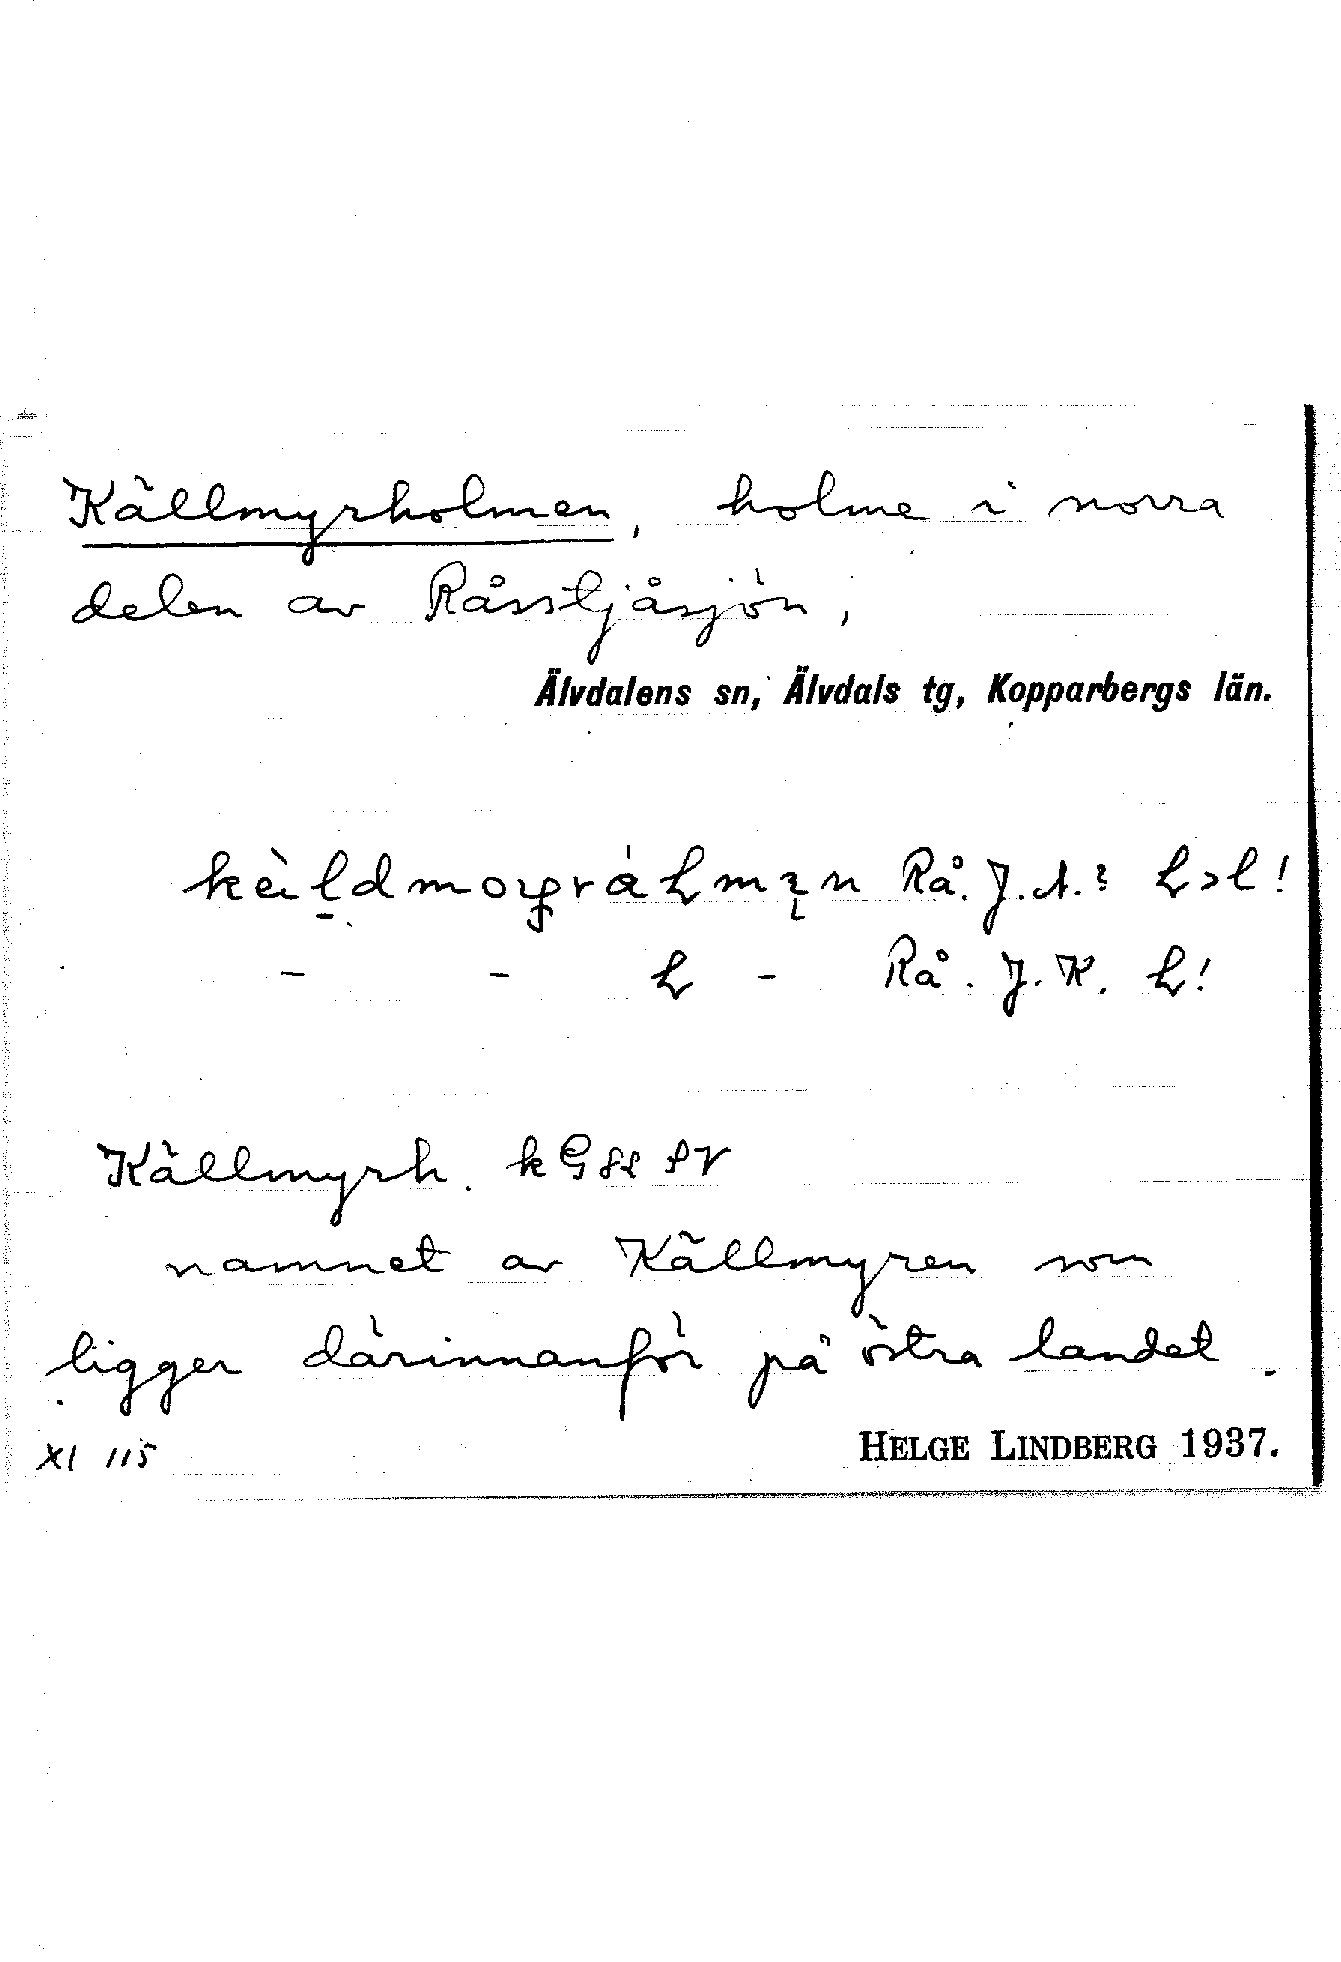 Källmyrholmen, holme i norra
delen av Råsstjåsjön,
Älvdalens sn, Älvdals tg, Kopparbergs län.
Rå. J. A.
- - L - Rå. J. K. L!
Källmyrh. k G
namnet av Källmyren som
ligger därinnanför på östra landet.
XI 115
HELGE LINDBERG 1937.